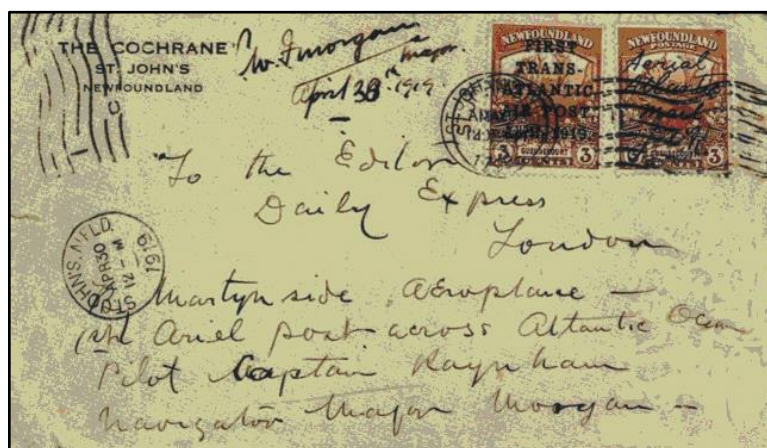 THE COCHRANE
ST. JOHN'S
NEWFOUNDLAND
W. F. Morgan
Major.
April 30th 1919.
NEWFOUNDLAND
FIRST
TRANS-
ATLANTIC
AIR POST
April, 1919.
3 3
NEWFOUNDLAND
POSTAGE
Aerial
Atlantic
mail
3
To the Editor
Daily Express
London
ST. JOHN'S, NFLD.
APR 30
12 - M
1919
Martynside Aeroplane —
1st Ariel post across Atlantic Ocean
Pilot Captain Raynham
Navigator Major Morgan —